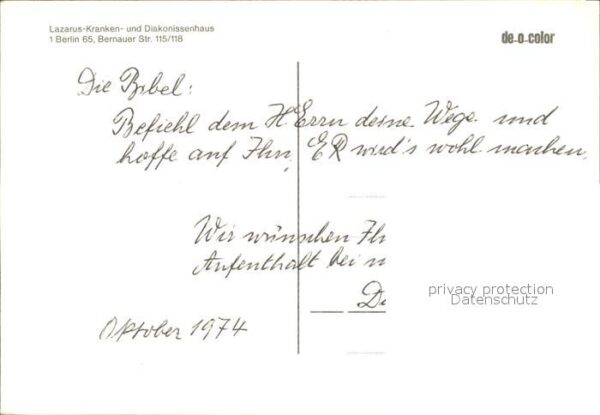 Lazarus-Kranken- und Diakonissenhaus
1 Berlin 65, Bernauer Str. 115/118
de-o-color
Die Bibel:
Befiehl dem HErrn deine Wege und
hoffe auf Ihn, ER wird's wohl machen.
Wir wünschen Ih
Aufenthalt bei
D
privacy protection
Datenschutz
Oktober 1974